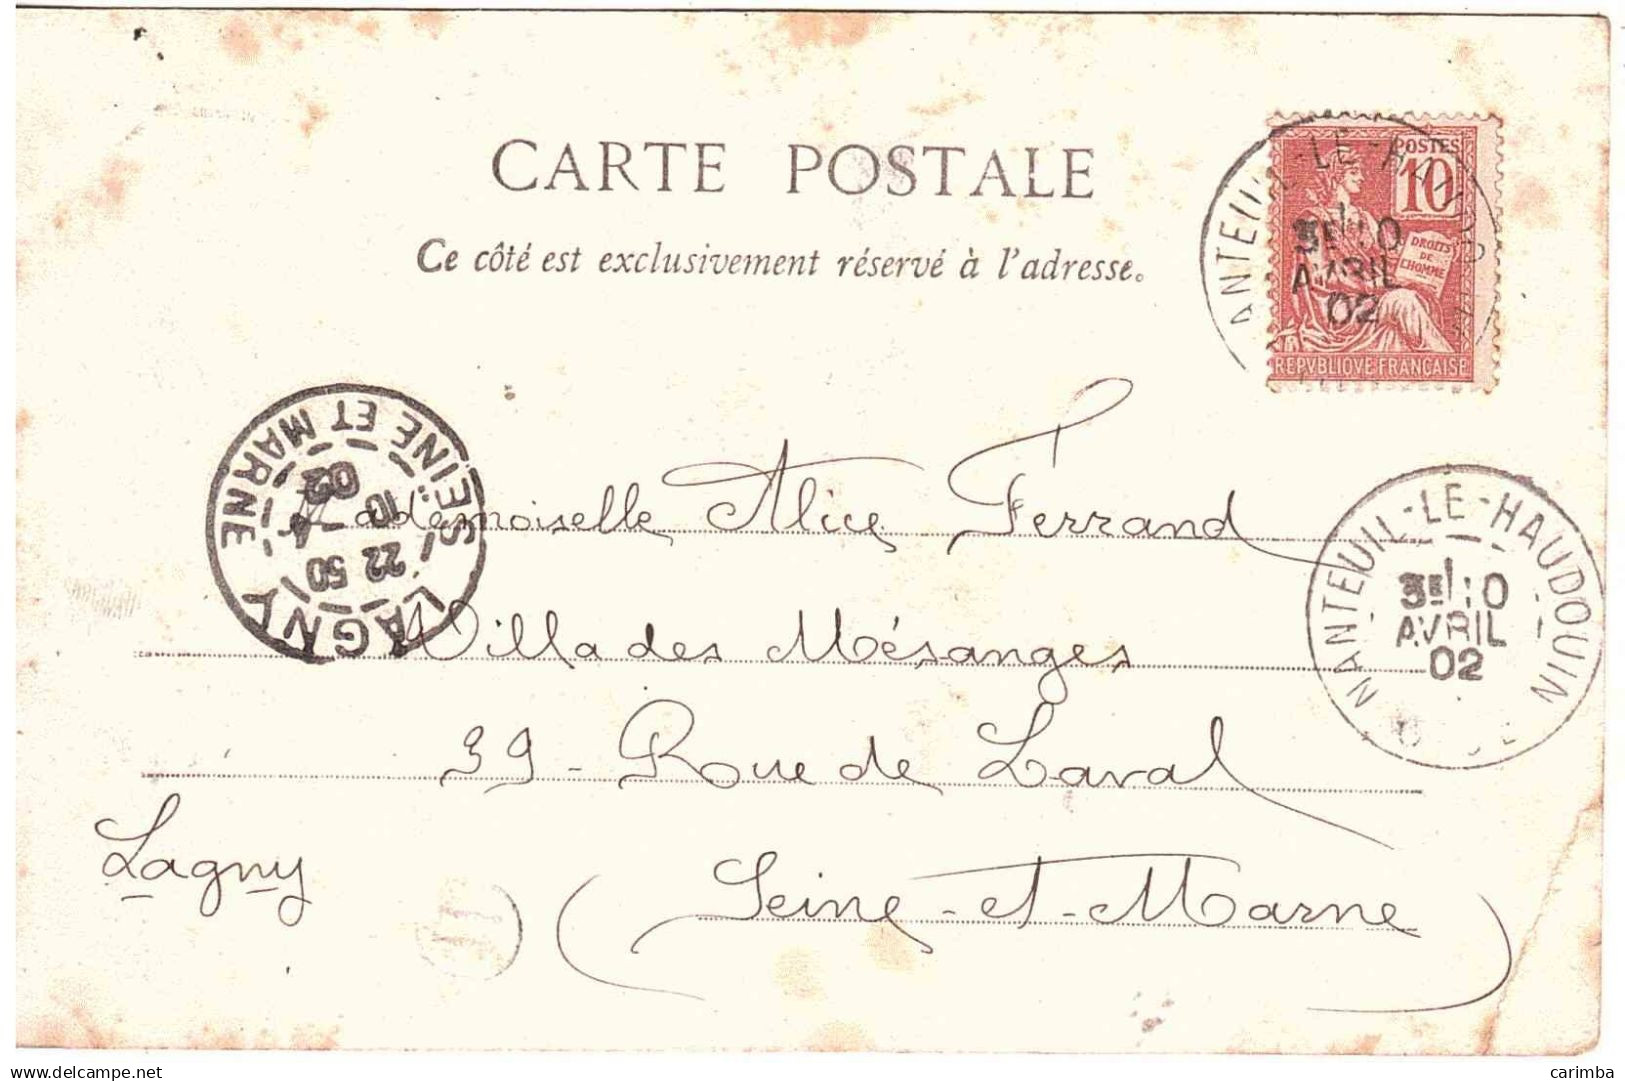 CARTE POSTALE
Ce côté est exclusivement réservé à l'adresse.
POSTES
10
DROITS
DE
L'HOMME
REPVBLIQVE FRANÇAISE
ANTEUIL-LE-HAUDOUIN
3E 10
AVRIL
02
LAGNY
SEINE ET MARNE
22 50
10 -4
02
NANTEUIL-LE-HAUDOUIN
3E 10
AVRIL
02
Mademoiselle Alice Ferrand
Villa des Mésanges
39 - Rue de Laval
Lagny
(Seine-et-Marne)
carimba